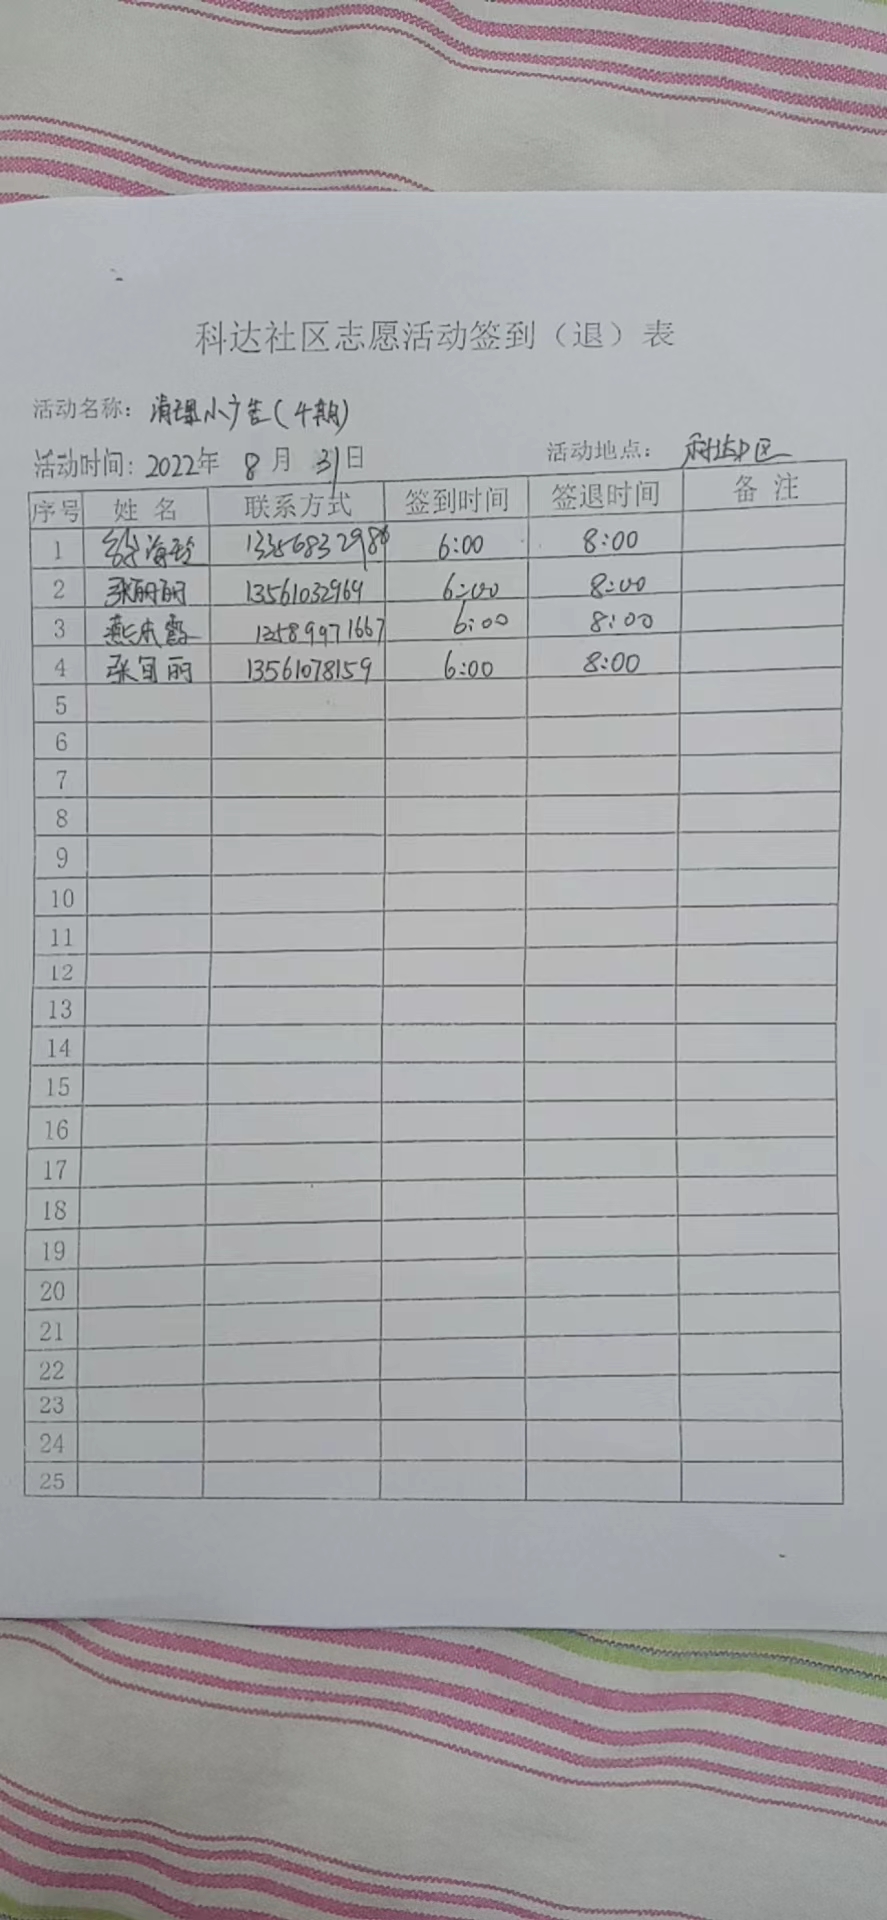 科达社区志愿活动签到（退）表
活动名称：清理小广告（4期）
活动时间：2022年 8月 31日 活动地点：科达小区
序号 姓名 联系方式 签到时间 签退时间 备注
1 徐海玲 13356832986 6:00 8:00
2 张丽丽 13561032969 6:00 8:00
3 燕 霞 13589971667 6:00 8:00
4 张 丽 13561078159 6:00 8:00
5
6
7
8
9
10
11
12
13
14
15
16
17
18
19
20
21
22
23
24
25